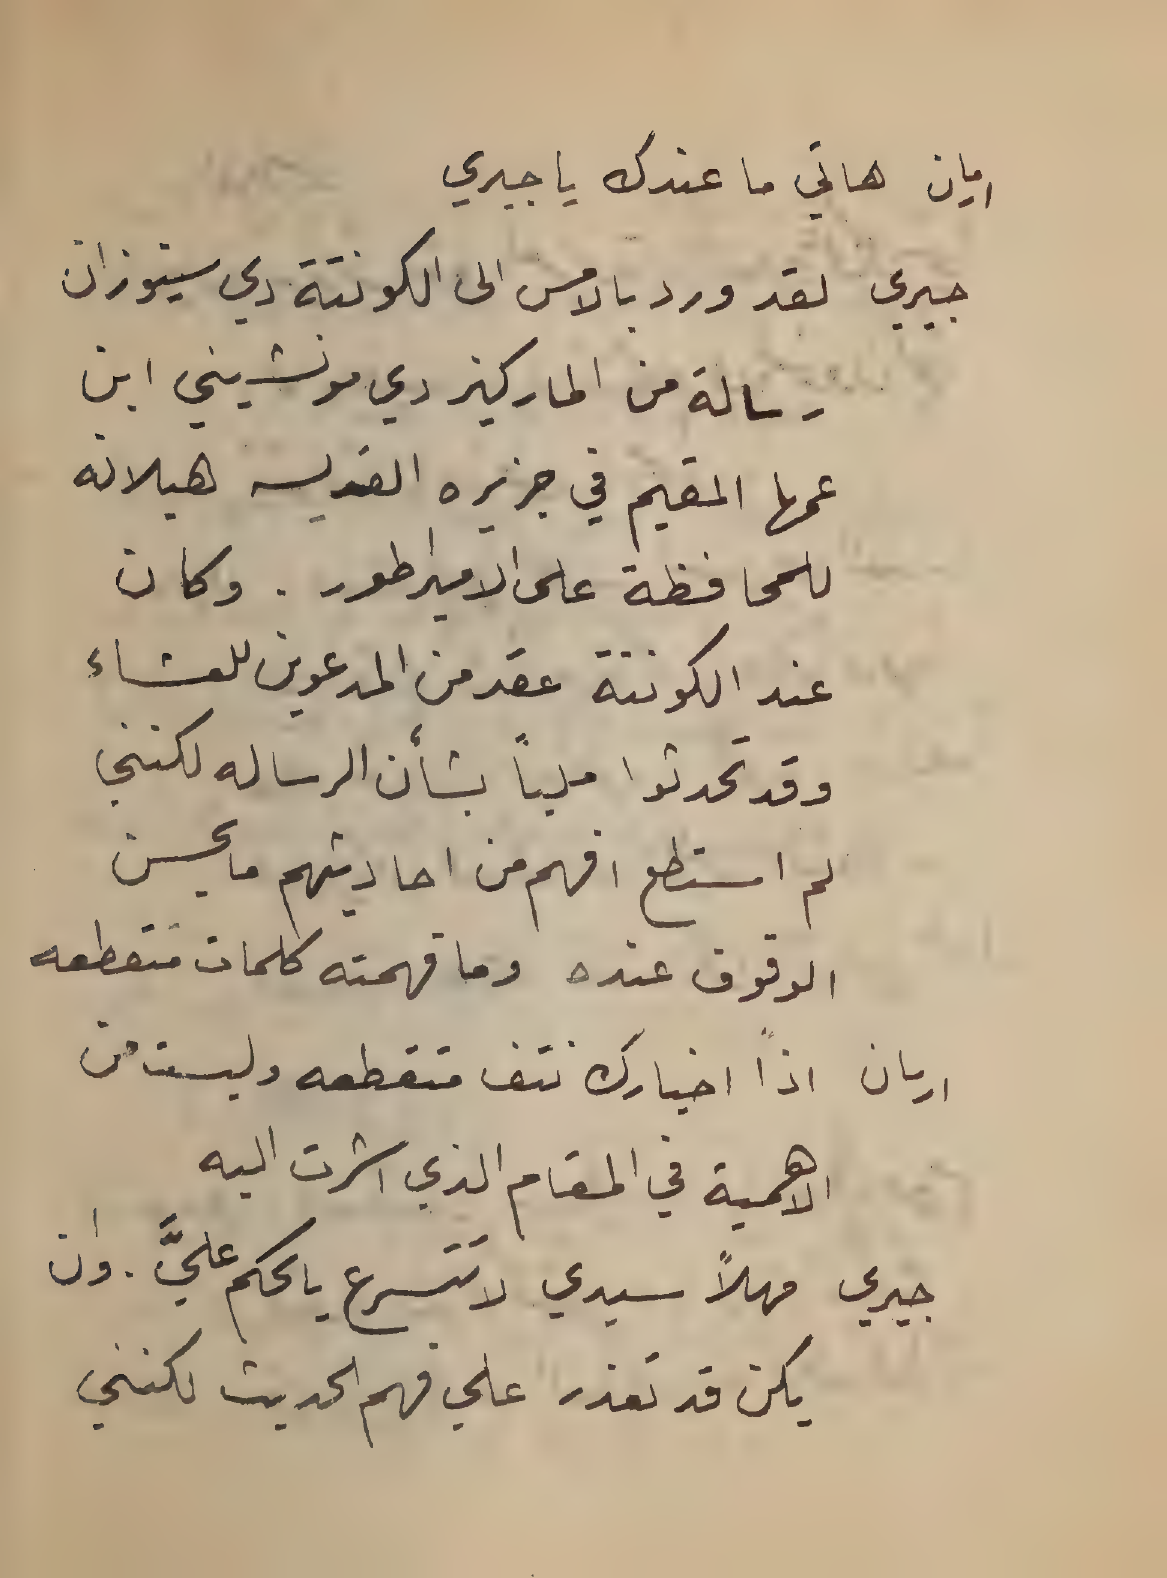 اريان هاتي ما عندك يا جيري
جيري لقد ورد بالامس الى الكونتة دي سيتوزان
رسالة من الماركيز دي مونشيني ابن
عمها المقيم في جزيره القديسه هيلانه
للمحافظة على الامبراطور . وكان
عند الكونتة عقد من المدعوين للعشاء
وقد تحدثوا ملياً بشأن الرساله لكنني
لم استطع افهم من احاديثهم ما يحسن
الوقوف عنده وما فهمته كلمات متقطعه
اريان اذاً اخبارك نتف متقطعه وليست من
الاهمية في المقام الذي اشرت اليه
جيري مهلاً سيدي لا تتسرع بالحكم عليَّ . وان
يكن قد تعذر علي فهم الحديث لكنني